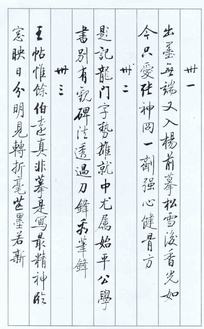 卅一
出墨無端又入楊前摹松雪後香光如
今只愛張神冏一劑強心健骨方
卅二
題記龍門字勢雄就中尤屬始平公學
書別有觀碑法透過刀鋒看筆鋒
卅三
王帖惟餘伯遠真非摹是寫最精神臨
窗映日分明見轉折毫芒墨若新